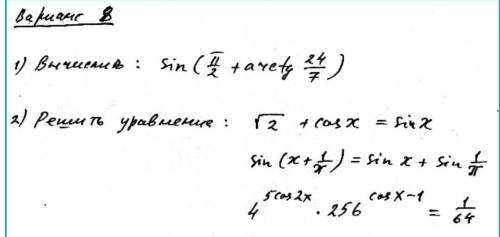 Вариант 8
1) Вычислить: sin(π/2 + arctg 24/7)
2) Решить уравнение: √2 + cos x = sin x
sin(x + 1/π) = sin x + sin 1/π
4^(5cos2x) · 256^(cosx−1) = 1/64